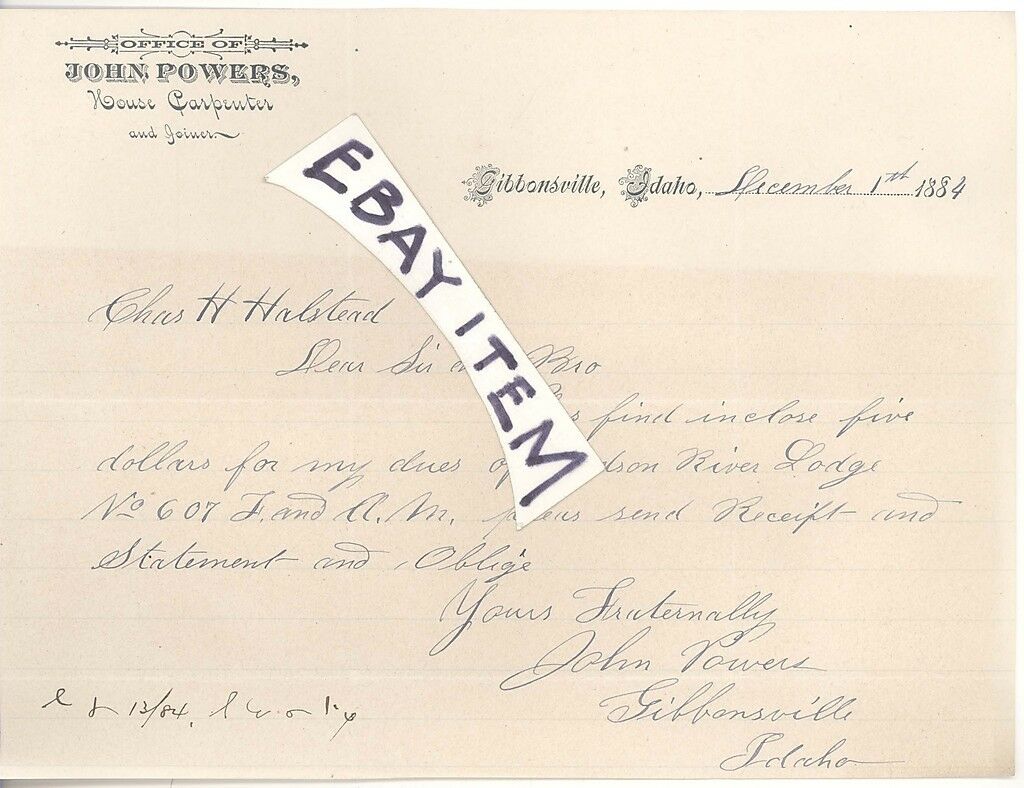 OFFICE OF
JOHN POWERS,
House Carpenter
and Joiner
Gibbonsville, Idaho, December 1st 1884
EBAY ITEM
Chas H Halstead
Dear Sir Bro
find inclose five
dollars for my dues River Lodge
No 607 F. and A. M. send Receipt and
Statement and Oblige
Yours Fraternally
John Powers
Gibbonsville
Idaho
13/84